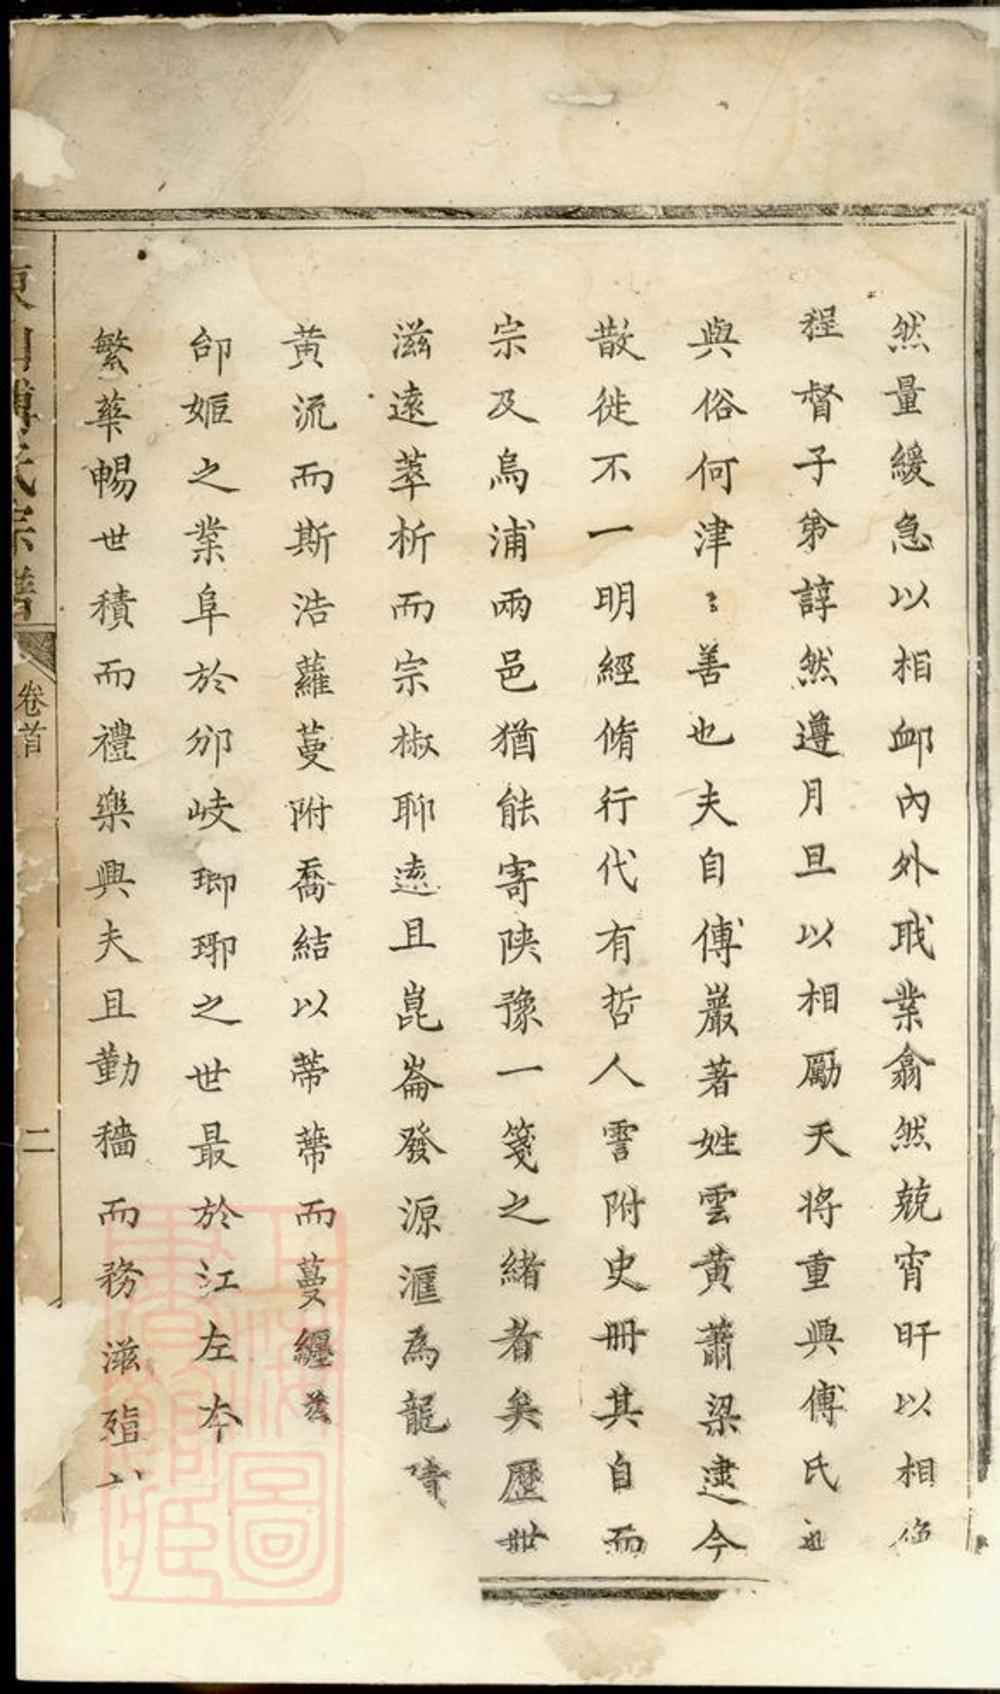 然量緩急以相卹內外戢業翕然兢宵旰以相
程督子弟諄然遵月旦以相勵天將重興傅氏
與俗何津〻善也夫自傅巖著姓雲黃蕭梁逮今
散徙不一明經脩行代有哲人霅附史冊其自而
宗及烏浦兩邑猶能寄陝豫一箋之緒者矣歷世
滋遠萃析而宗椒聊遠且崑崙發源滙為龍
黃流而斯浩蘿蔓附喬結以蒂蒂而蔓纏茲
邰姬之業阜於邠岐瑯琊之世最於江左本
繁華暢世積而禮樂興夫且勤穡而務滋殖
東山傅氏宗譜
卷首
二
上海圖書館藏